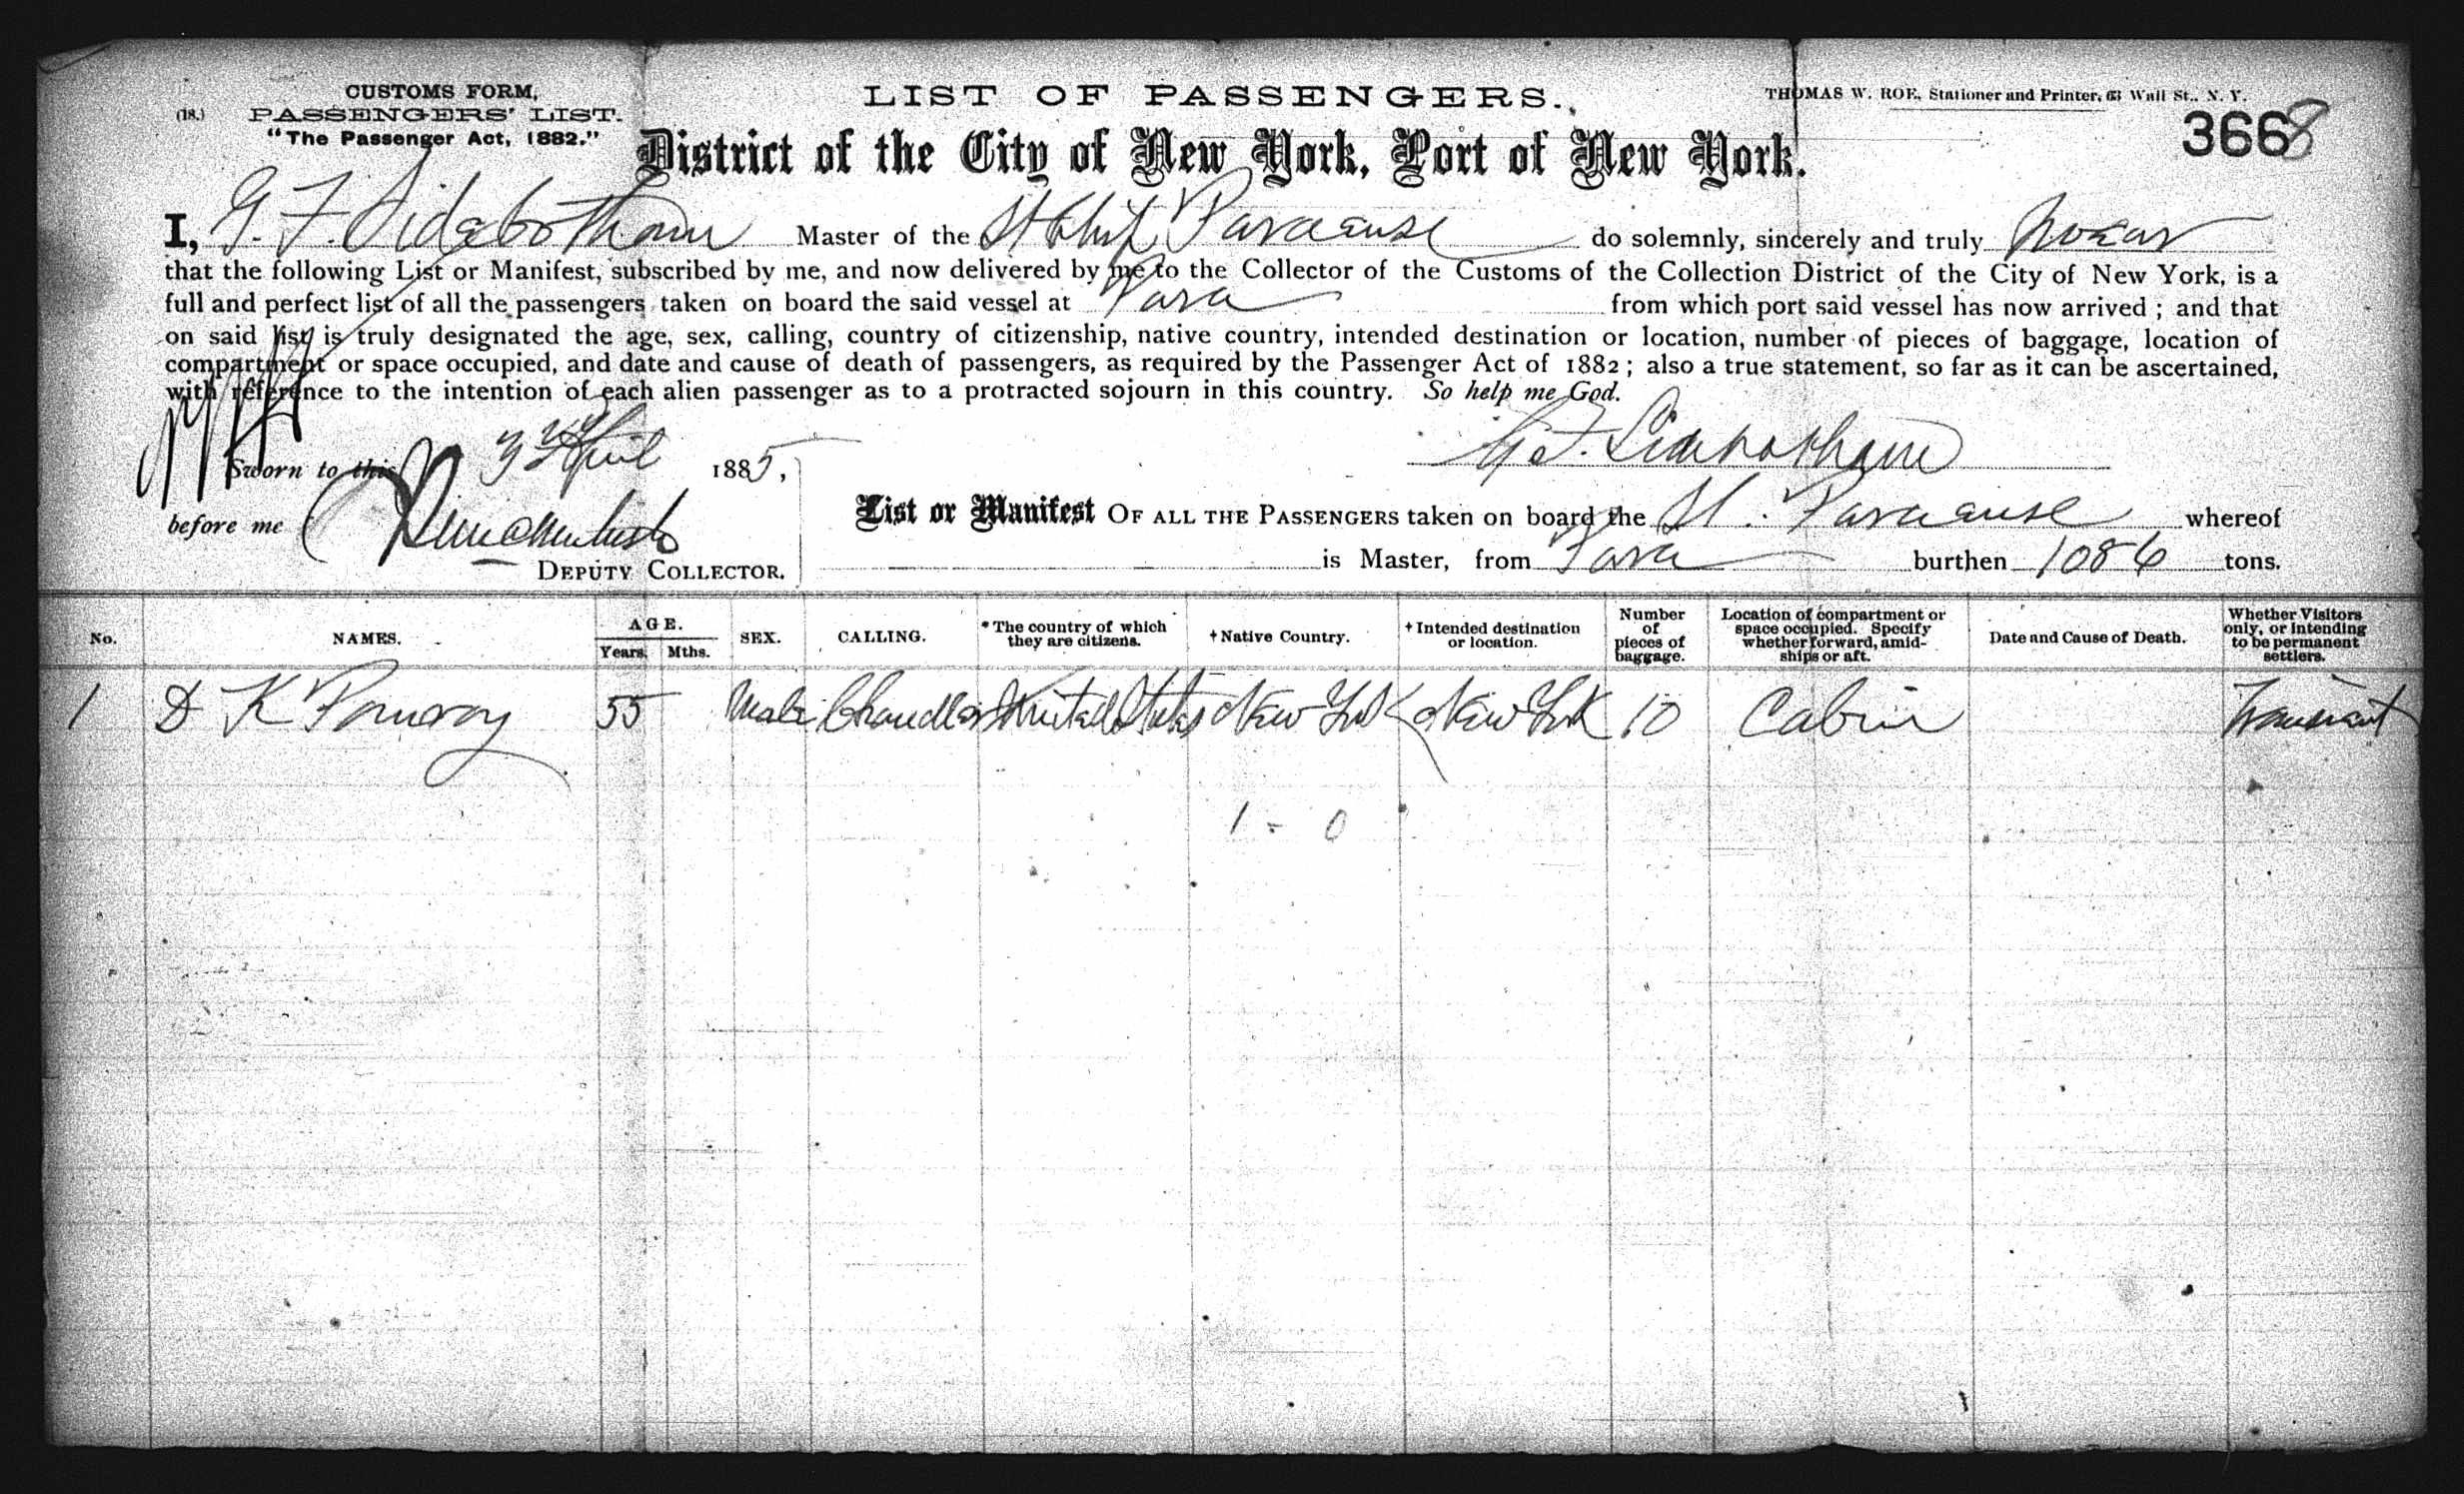 CUSTOMS FORM,
(18.) PASSENGERS' LIST.
"The Passenger Act, 1882."
LIST OF PASSENGERS.
THOMAS W. ROE, Stationer and Printer, 63 Wall St., N. Y.
3668
District of the City of New York, Port of New York.
I, G. F. Sidebotham Master of the StShip Paraense do solemnly, sincerely and truly swear
that the following List or Manifest, subscribed by me, and now delivered by me to the Collector of the Customs of the Collection District of the City of New York, is a
full and perfect list of all the passengers taken on board the said vessel at Para from which port said vessel has now arrived ; and that
on said list is truly designated the age, sex, calling, country of citizenship, native country, intended destination or location, number of pieces of baggage, location of
compartment or space occupied, and date and cause of death of passengers, as required by the Passenger Act of 1882 ; also a true statement, so far as it can be ascertained,
with reference to the intention of each alien passenger as to a protracted sojourn in this country. So help me God.
G. F. Sidebotham
Sworn to this 3 April 1885,
before me
DEPUTY COLLECTOR.
List or Manifest OF ALL THE PASSENGERS taken on board the St. Paraense whereof
is Master, from Para burthen 1086 tons.
No. NAMES. AGE. Years. Mths. SEX. CALLING. * The country of which they are citizens. † Native Country. † Intended destination or location. Number of pieces of baggage. Location of compartment or space occupied. Specify whether forward, amidships or aft. Date and Cause of Death. Whether Visitors only, or intending to be permanent settlers.
1 D K Pomeroy 55 Male Chandler United States New York New York 10 Cabin Transient
1 - 0